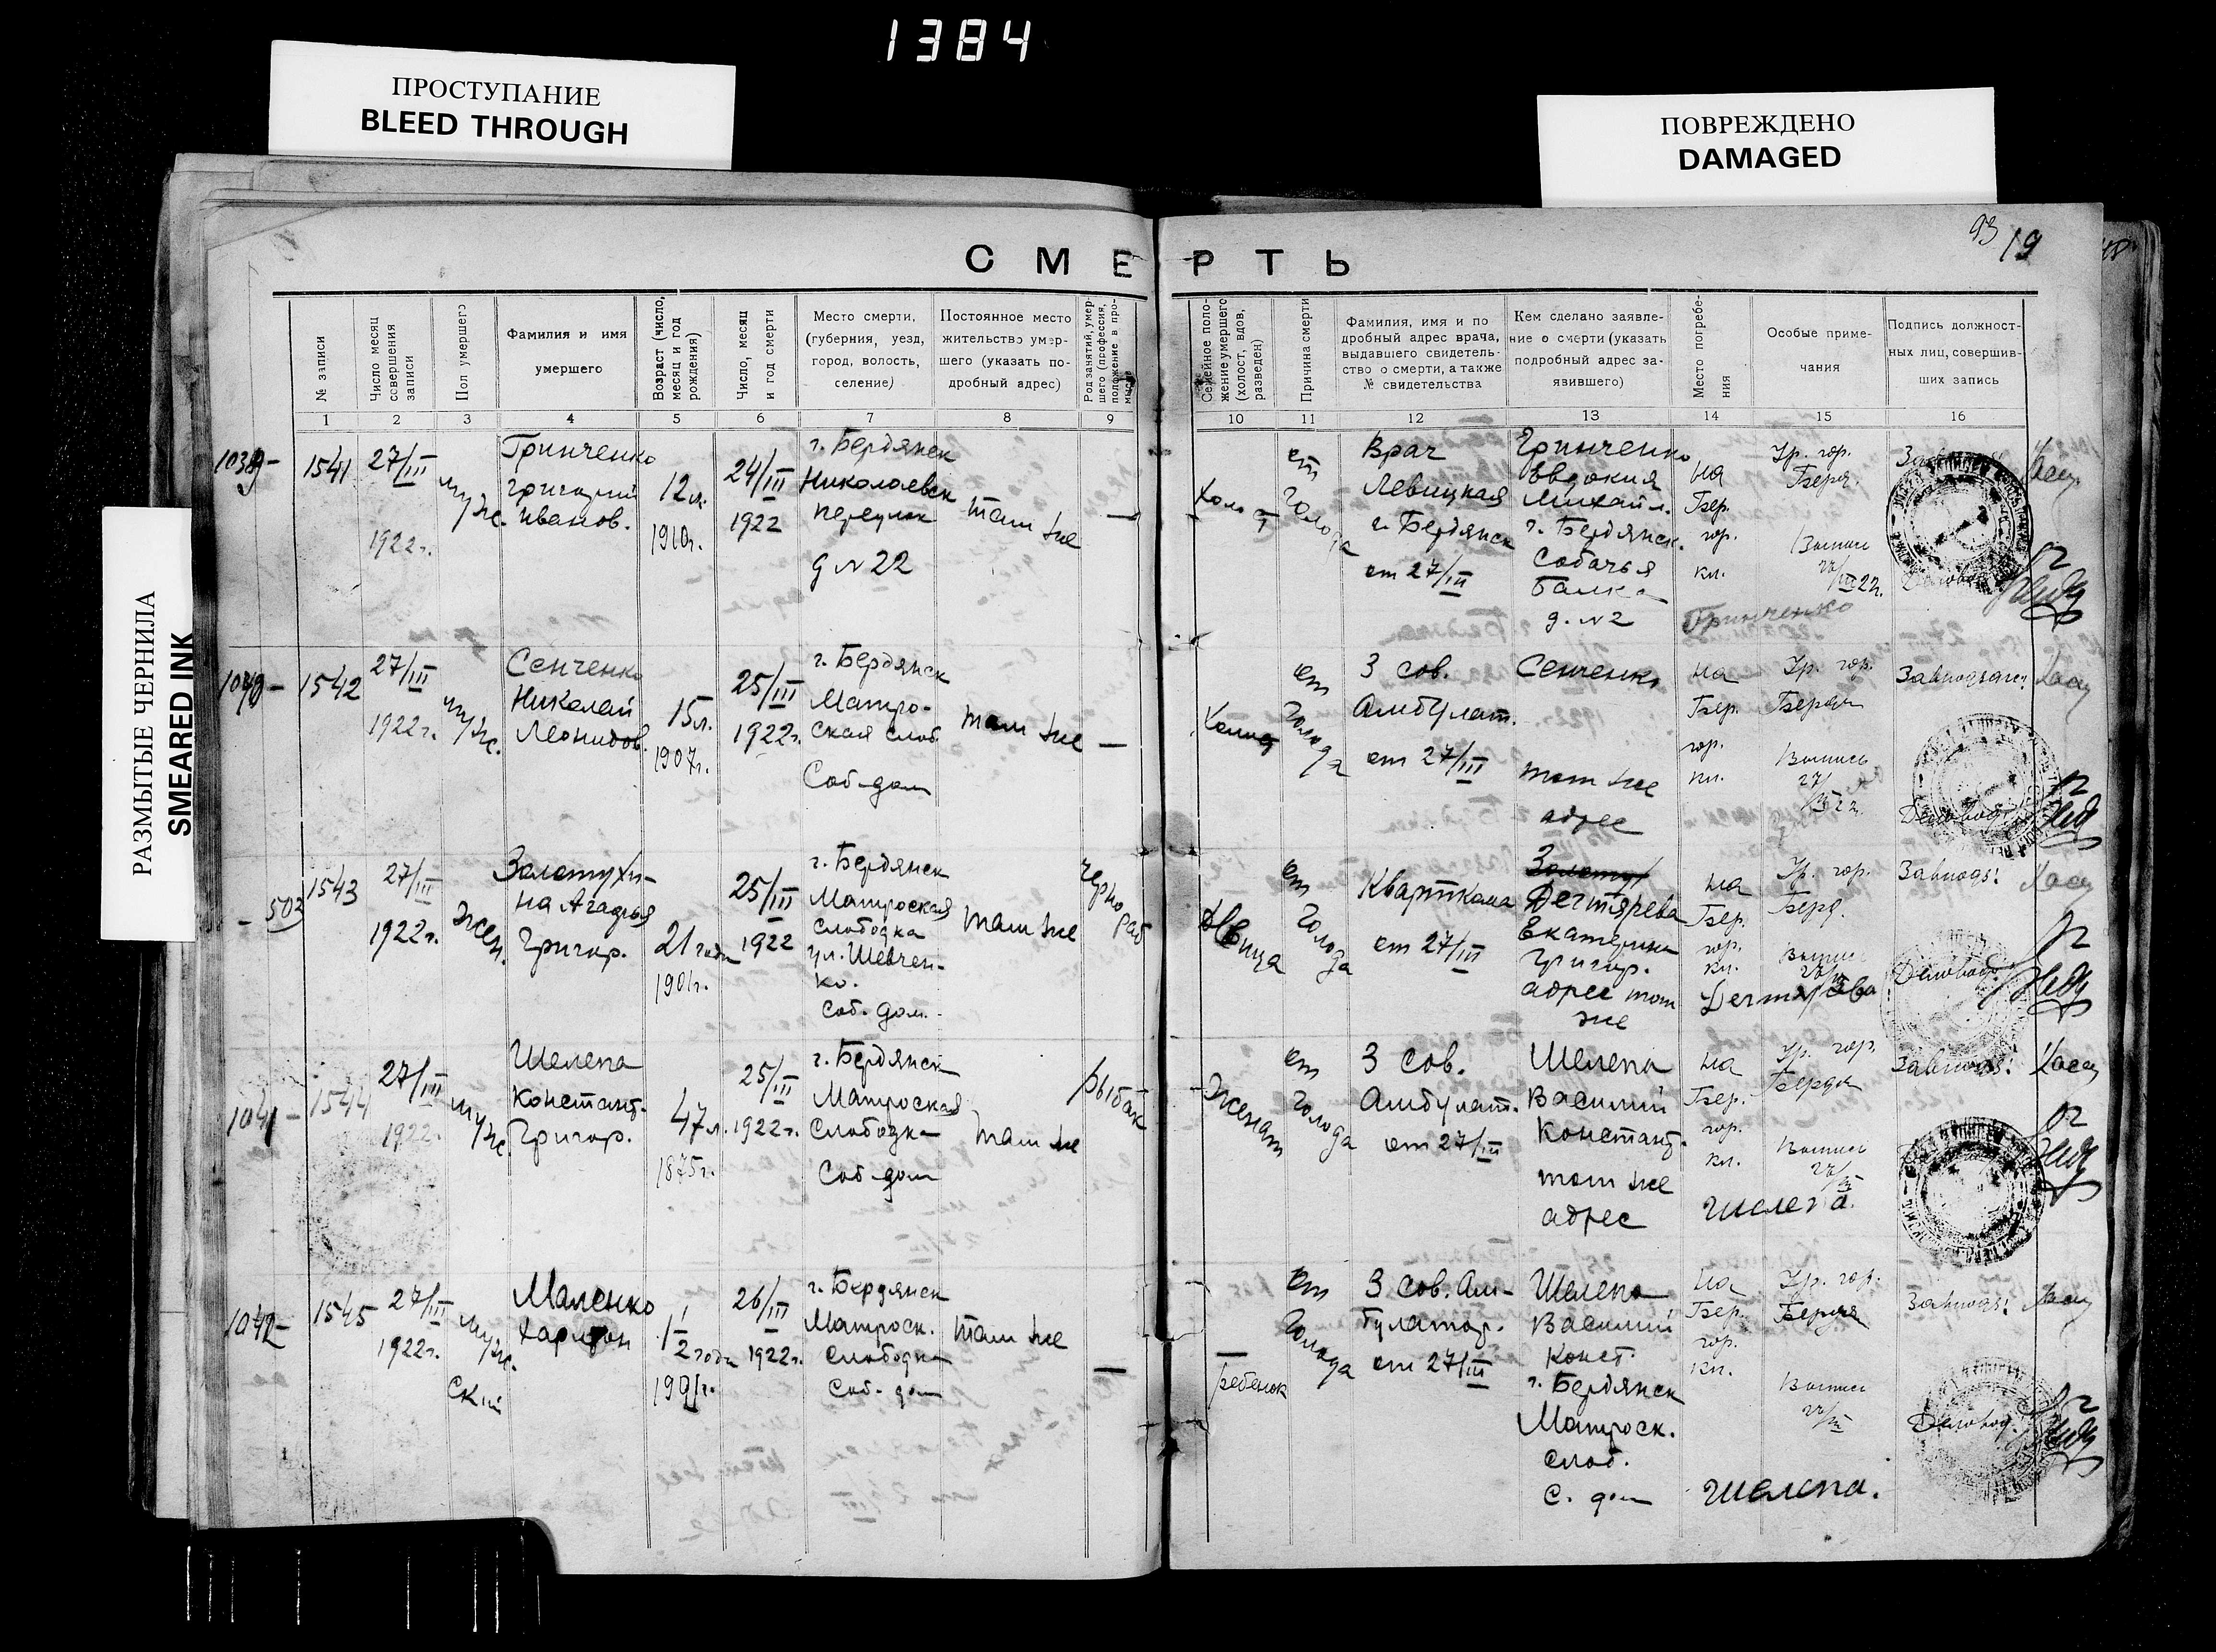 1384
ПРОСТУПАНИЕ
BLEED THROUGH
ПОВРЕЖДЕНО
DAMAGED
РАЗМЫТЫЕ ЧЕРНИЛА
SMEARED INK
93 19
СМЕРТЬ
№ записи
Число месяц совершения записи
Пол умершего
Фамилия и имя
умершего
Возраст (число, месяц и год рождения)
Число, месяц и год смерти
Место смерти,
(губерния, уезд,
город, волость,
селение)
Постоянное место
жительство умер-
шего (указать по-
дробный адрес)
Род занятий, умер-
шего (профессия,
положение в про-
мысле
Семейное поло-
жение умершего
(холост, вдов,
разведен)
Причина смерти
Фамилия, имя и по
дробный адрес врача,
выдавшего свидетель-
ство о смерти, а также
№ свидетельства
Кем сделано заявле-
ние о смерти (указать
подробный адрес за-
явившего)
Место погребе-
ния
Особые приме-
чания
Подпись должност-
ных лиц, совершив-
ших запись
1 2 3 4 5 6 7 8 9 10 11 12 13 14 15 16
1039-
1541
27/III
1922г.
муж.
Гринченко
Григорий
Иванов.
12л.
1910г.
24/III
1922
г. Бердянск
Николаевск
переулок
д №22
там же
—
Холост
от
голода
Врач
Левицкая
г. Бердянск
от 27/III
Гринченко
Евдокия
Михайл.
г. Бердянск.
Собачья
Балка
д. №2
на
Бер.
гор.
кл.
Гр. гор.
Берд.
Выпись
27/III 22г.
Гринченко
1040-
1542
27/III
1922г.
муж.
Сенченко
Николай
Леонидов.
15л.
1907г.
25/III
1922г.
г. Бердянск
Матро-
ская слоб
Соб-дом
там же
—
от
голода
3 сов.
Амбулат.
от 27/III
Сенченко
том же
адрес
на
Бер.
гор.
кл.
Гр. гор.
Бердян
Выпись
27/III 22
Завподзаг:
Деловод
- 503
1543
27/III
1922г.
жен.
Золотухи-
на Агафья
Григор.
21 года
1901г.
25/III
1922
г. Бердянск
Матроская
слободка
ул. Шевчен-
ко.
Соб. дом.
там же
Черно
раб
девица
от
голода
Квартком
от 27/III
Дегтярева
Екатерина
Григор.
адрес тот
же
на
Бер.
гор.
кл.
Гр. гор.
Берд.
Выпись
Дегтярева
Завподз:
Деловод.
1041-
1544
27/III
1922г.
муж.
Шелепа
Констант.
Григор.
47л.
1875г.
25/III
1922г.
г. Бердянск
Матроская
слободка
Соб-дом
там же
рыбак
женат
от
голода
3 сов.
Амбулат.
от 27/III
Шелепа
Василий
Констант.
том же
адрес
на
Бер.
гор.
кл.
Гр. гор.
Бердян
Выпись
27/III
Шелепа.
Завподз:
1042-
1545
27/III
1922г.
муж.
ский
Маленко
Харитон
1 1/2 года
26/III
1922г.
г. Бердянск
Матроск.
слободка
Соб-дом
там же
—
—
ребенок
от
голода
3 сов. Ам-
булатор.
от 27/III
Шелепа
Василий
Конст.
г. Бердянск
Матроск.
слоб.
С. дом
на
Бер.
гор.
кл.
Гр. гор.
Бердя
Выпись
27/III
Шелепа.
Завподз:
Деловод.